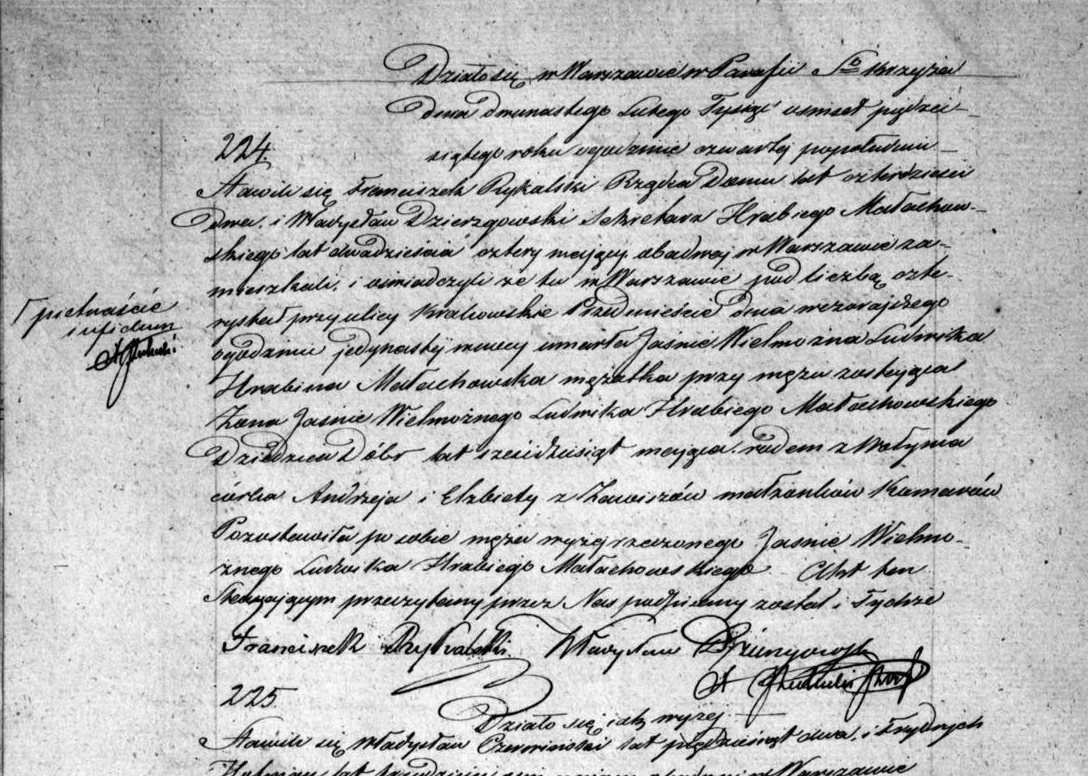 Działo się w Warszawie w Parafii Sgo Krzyża
dnia dwunastego Lutego Tysiąc ośmset pięćdzie-
224.
siątego roku o godzinie czwartej popołudniu –
Stawili się Franciszek Rykalski Rządca Domu lat czterdzieści
Dwa, i Władysław Dzierzgowski Sekretarz Hrabiego Małachow-
skiego lat dwadzieścia cztery mający, obadwaj w Warszawie za-
mieszkali, i oświadczyli że tu w Warszawie pod liczbą czte-
rysta Γ przy ulicy Krakowskie Przedmieście dnia wczorajszego
Γ piętnaście
o godzinie jedynastej w nocy umarła Jaśnie Wielmożna Ludwika
Hrabina Małachowska mężatka przy mężu zostająca
Żona Jaśnie Wielmożnego Ludwika Hrabiego Małachowskiego
Dziedzica Dóbr lat sześćdziesiąt mająca, rodem z Wołynia
córka Andrzeja i Elżbiety z Zawiszów małżonków Komarów
Pozostawiła po sobie męża wyżej rzeczonego Jaśnie Wielmo-
żnego Ludwika Hrabiego Małachowskiego – Akt ten
Stawającym przeczytany przez Nas podpisany został i Tychże
Franciszek Rykalski Władysław Dzierzgowski
225.
Działo się i akt wyżej –
Stawili się Władysław Czerwiński lat pięćdziesiąt dwa, i Frydrych
lat trzydzieści w Warszawie